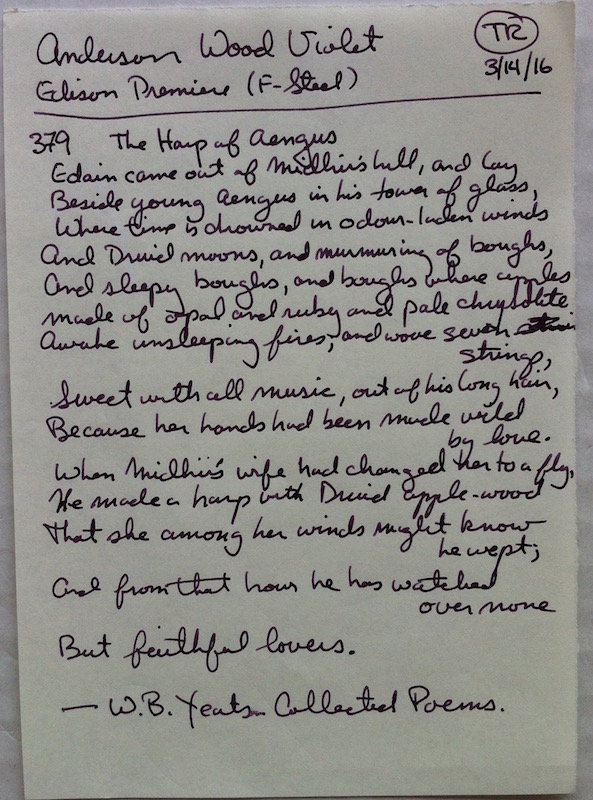 Anderson Wood Violet
TR
Edison Premiere (F-Steel)
3/14/16
379 The Harp of Aengus
Edain came out of Midhir's hill, and lay
Beside young Aengus in his tower of glass,
Where time is drowned in odour-laden winds
And Druid moons, and murmuring of boughs,
And sleepy boughs, and boughs where apples
made of opal and ruby and pale chrysolite
Awake unsleeping fires; and wove seven
strings,
Sweet with all music, out of his long hair,
Because her hands had been made wild
by love.
When Midhir's wife had changed her to a fly,
He made a harp with Druid apple-wood
That she among her winds might know
he wept;
And from that hour he has watched
over none
But faithful lovers.
— W.B. Yeats Collected Poems.